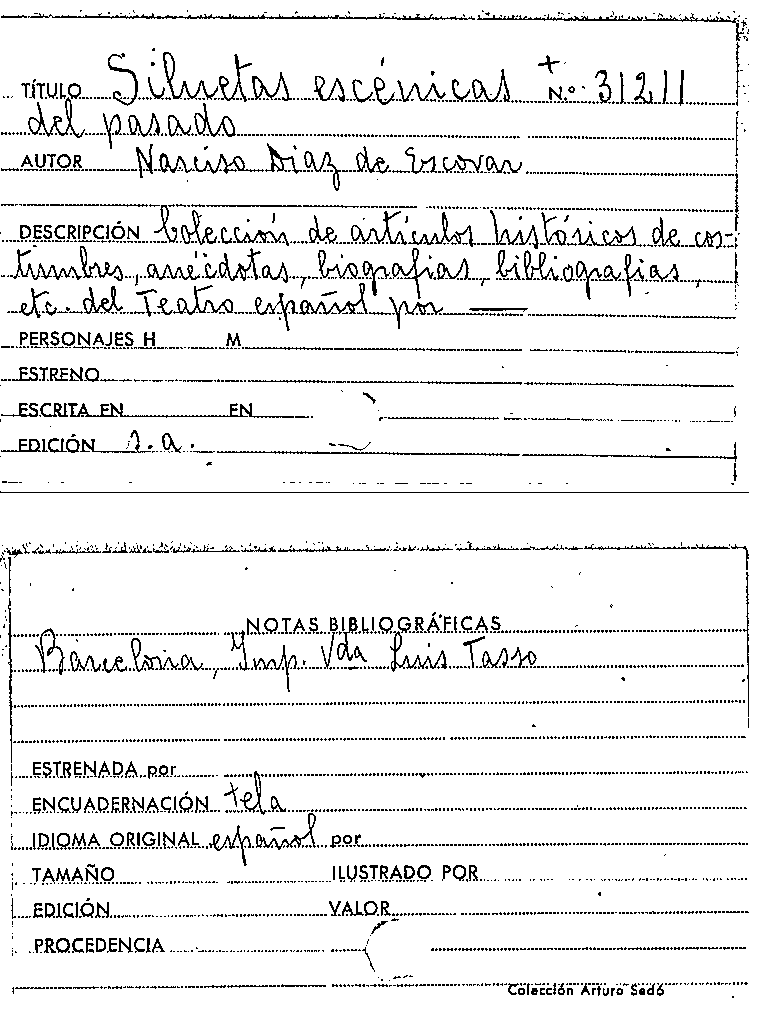 TÍTULO Siluetas escénicas + N.º 31211
del pasado
AUTOR Narciso Diaz de Escovar
DESCRIPCIÓN Colección de artículos históricos de cos-
tumbres, anécdotas, biografias, bibliografias,
etc. del Teatro español por ——
PERSONAJES H M
ESTRENO
ESCRITA EN EN
EDICIÓN s.a.
NOTAS BIBLIOGRÁFICAS
Barcelona, Imp. Vda Luis Tasso
ESTRENADA por
ENCUADERNACIÓN tela
IDIOMA ORIGINAL español por
TAMAÑO ILUSTRADO POR
EDICIÓN VALOR
PROCEDENCIA
Colección Arturo Sedó